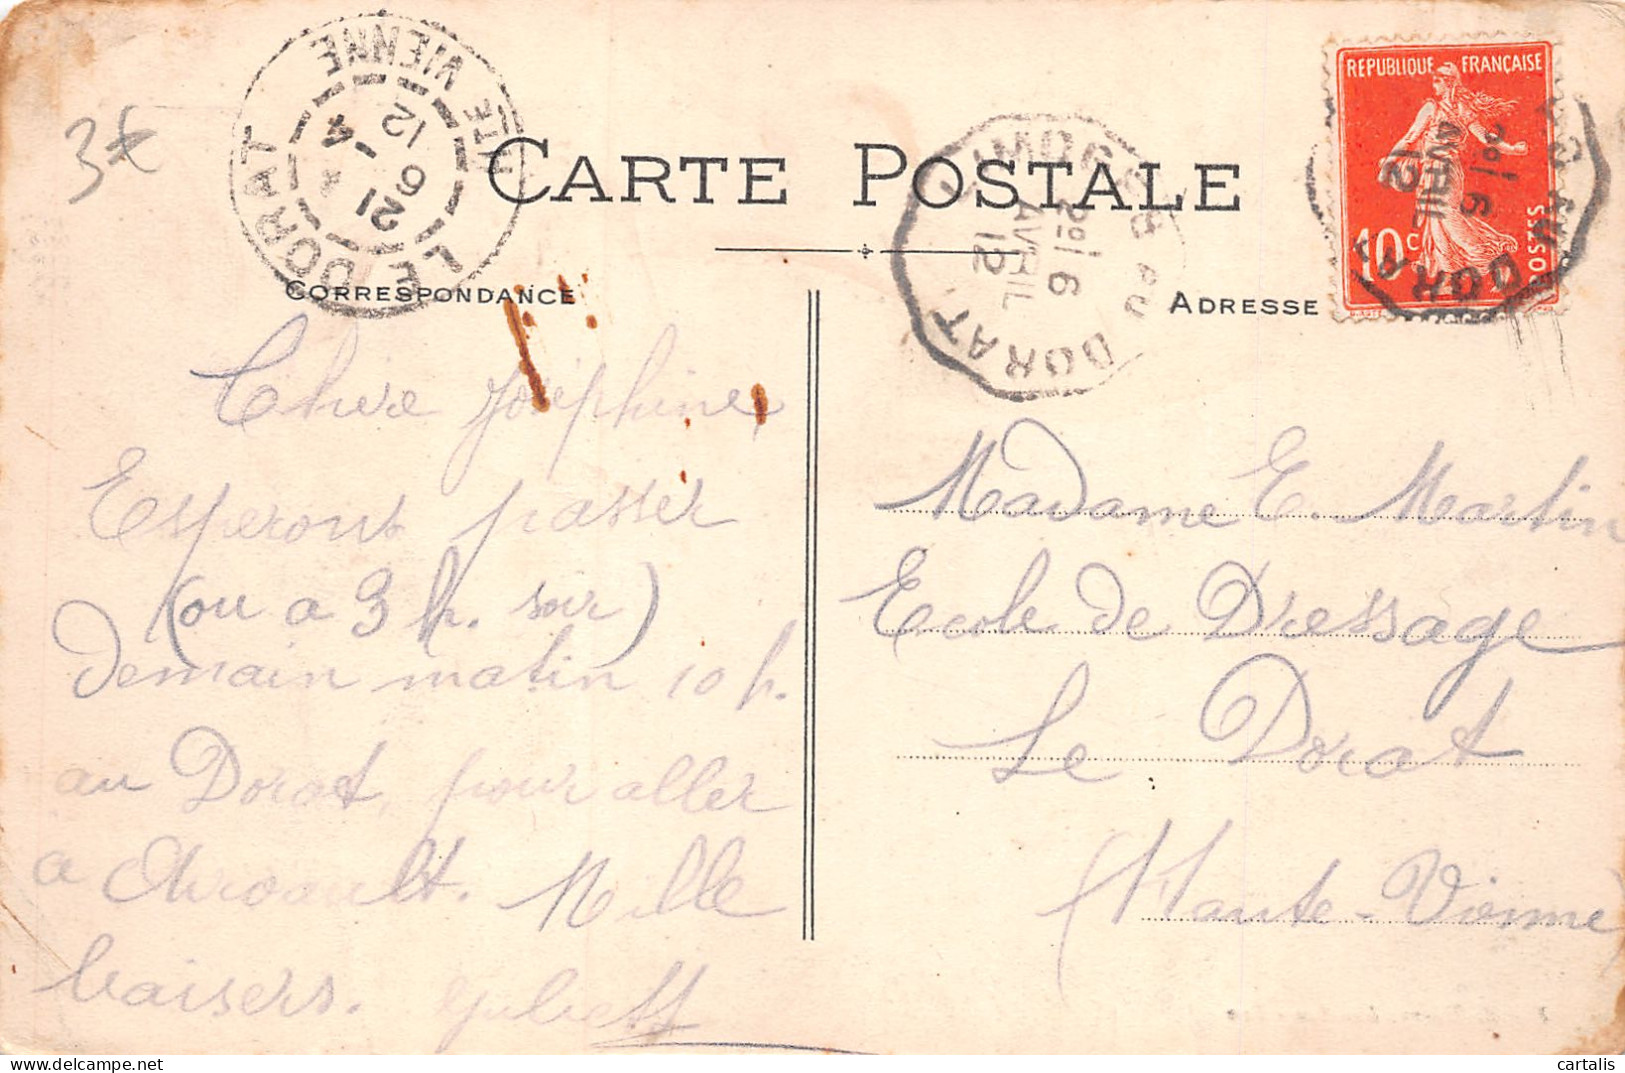 3€
LE DORAT
HTE VIENNE
21
6 -4
12
CARTE POSTALE
CORRESPONDANCE
ADRESSE
AU DORAT
2º 6
AVRIL
12
REPUBLIQUE FRANÇAISE
10c
POSTES
AU DORAT
2º 6
AVRIL
12
Chère Joséphine,
Esperons passer
(ou a 3 h. soir)
demain matin 10 h.
au Dorat, pour aller
a Mille
baisers.
Madame E. Martin
Ecole de Dressage
Le Dorat
(Haute-Vienne
cartalis